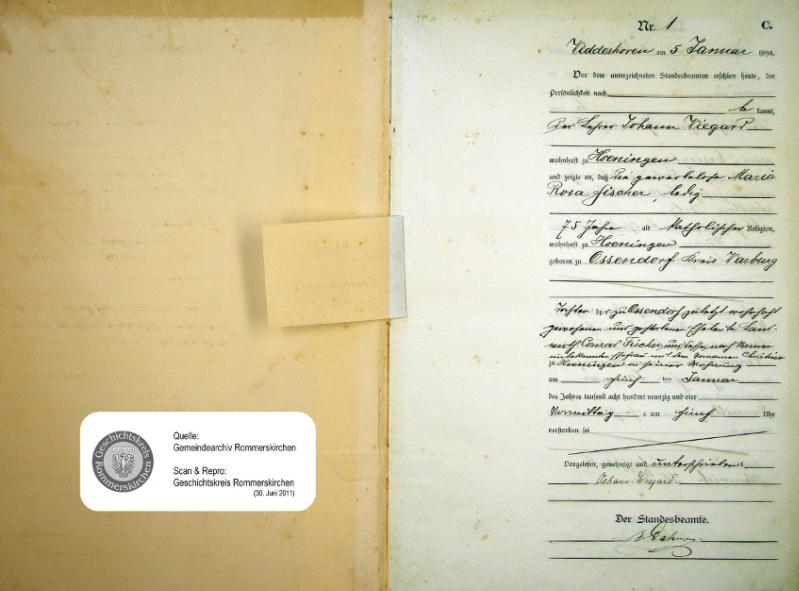 Geschichtskreis Rommerskirchen
Quelle:
Gemeindearchiv Rommerskirchen
Scan & Repro:
Geschichtskreis Rommerskirchen
(30. Juni 2011)
Nr. 1
C.
am 5 Januar 1894.
Vor dem unterzeichneten Standesbeamten erschien heute, der
Persönlichkeit nach
be kannt,
der Lehrer Johann Wiegard
wohnhaft zu Hoeningen
und zeigte an, daß die gewerbelose Maria
Rosa Fischer, ledig
75 Jahre alt Katholischer Religion,
wohnhaft zu Hoeningen
geboren zu Ossendorf Kreis Warburg
Tochter der zu Ossendorf zuletzt wohnhaft
gewesenen und gestorbenen Eheleute
Conrad Fischer und
unbekannter Ehefrau mit dem Vornamen Christina
zu Hoeningen in seiner Wohnung
am ten Januar
des Jahres tausend acht hundert neunzig und vier
Vormittag s um fünf Uhr
verstorben sei
Vorgelesen, genehmigt und unterschrieben
Johann Wiegard
Der Standesbeamte.